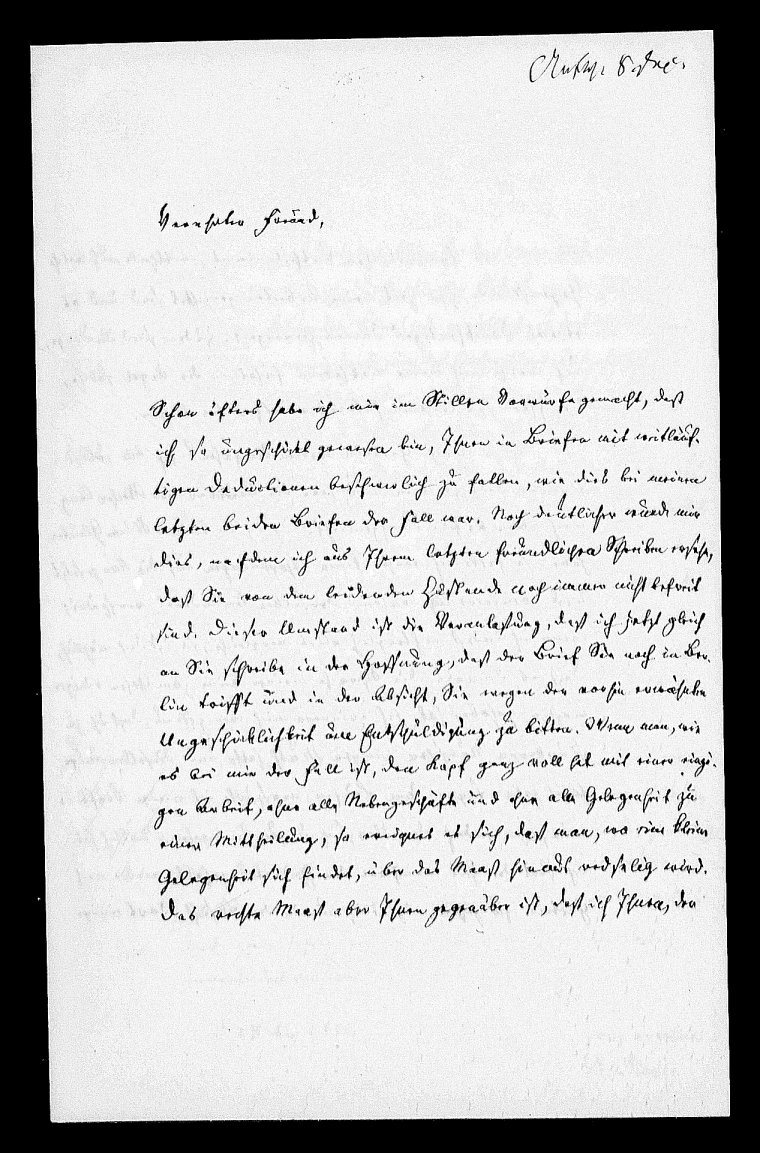 Antw. 8. Dec.
Verehrter Freund,
Schon öfters habe ich mir im Stillen Vorwürfe gemacht, daß
ich so ungeschickt gewesen bin, Ihnen in Briefen mit weitläuf-
tigen Deductionen beschwerlich zu fallen, wie dies bei meinen
letzten beiden Briefen der Fall war. Noch deutlicher wurde mir
dies, nachdem ich aus Ihrem letzten freundlichen Schreiben ersehe,
daß Sie von dem leidenden Zustande noch immer nicht befreit
sind. Dieser Umstand ist die Veranlassung, daß ich jetzt gleich
an Sie schreibe in der Hoffnung, daß der Brief Sie noch in Ber-
lin trifft und in der Absicht, Sie wegen der vorhin erwähnten
Ungeschicklichkeit um Entschuldigung zu bitten. Wenn man, wie
es bei mir der Fall ist, den Kopf ganz voll hat mit einer einzi-
gen Arbeit, ohne alle Nebengeschäfte und ohne alle Gelegenheit zu
einer Mittheilung, so ereignet es sich, daß man, wo eine kleine
Gelegenheit sich findet, über das Maaß hinaus redselig wird.
Das rechte Maaß aber Ihnen gegenüber ist, daß ich Ihnen, der